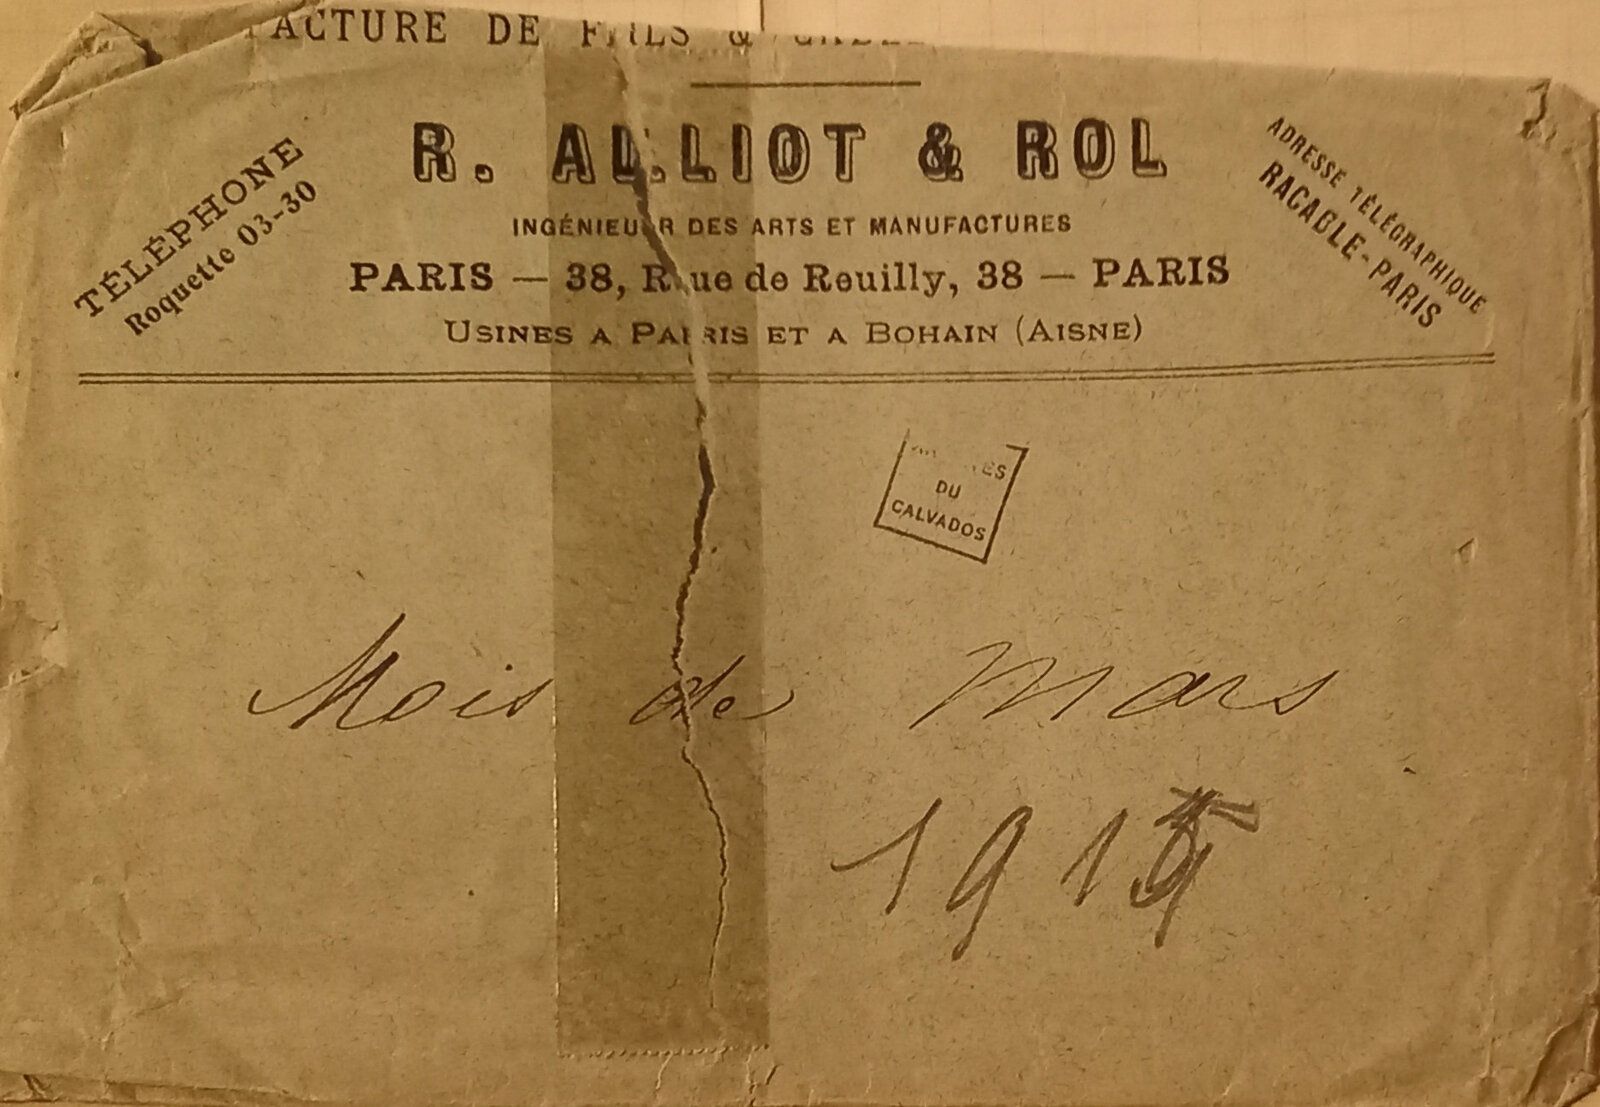 FACTURE DE FILS &
R. ALLIOT & ROL
INGÉNIEUR DES ARTS ET MANUFACTURES
PARIS — 38, Rue de Reuilly, 38 — PARIS
USINES A PARIS ET A BOHAIN (AISNE)
TÉLÉPHONE
Roquette 03-30
ADRESSE TÉLÉGRAPHIQUE
RACABLE-PARIS
DU
CALVADOS
Mois de Mars
191